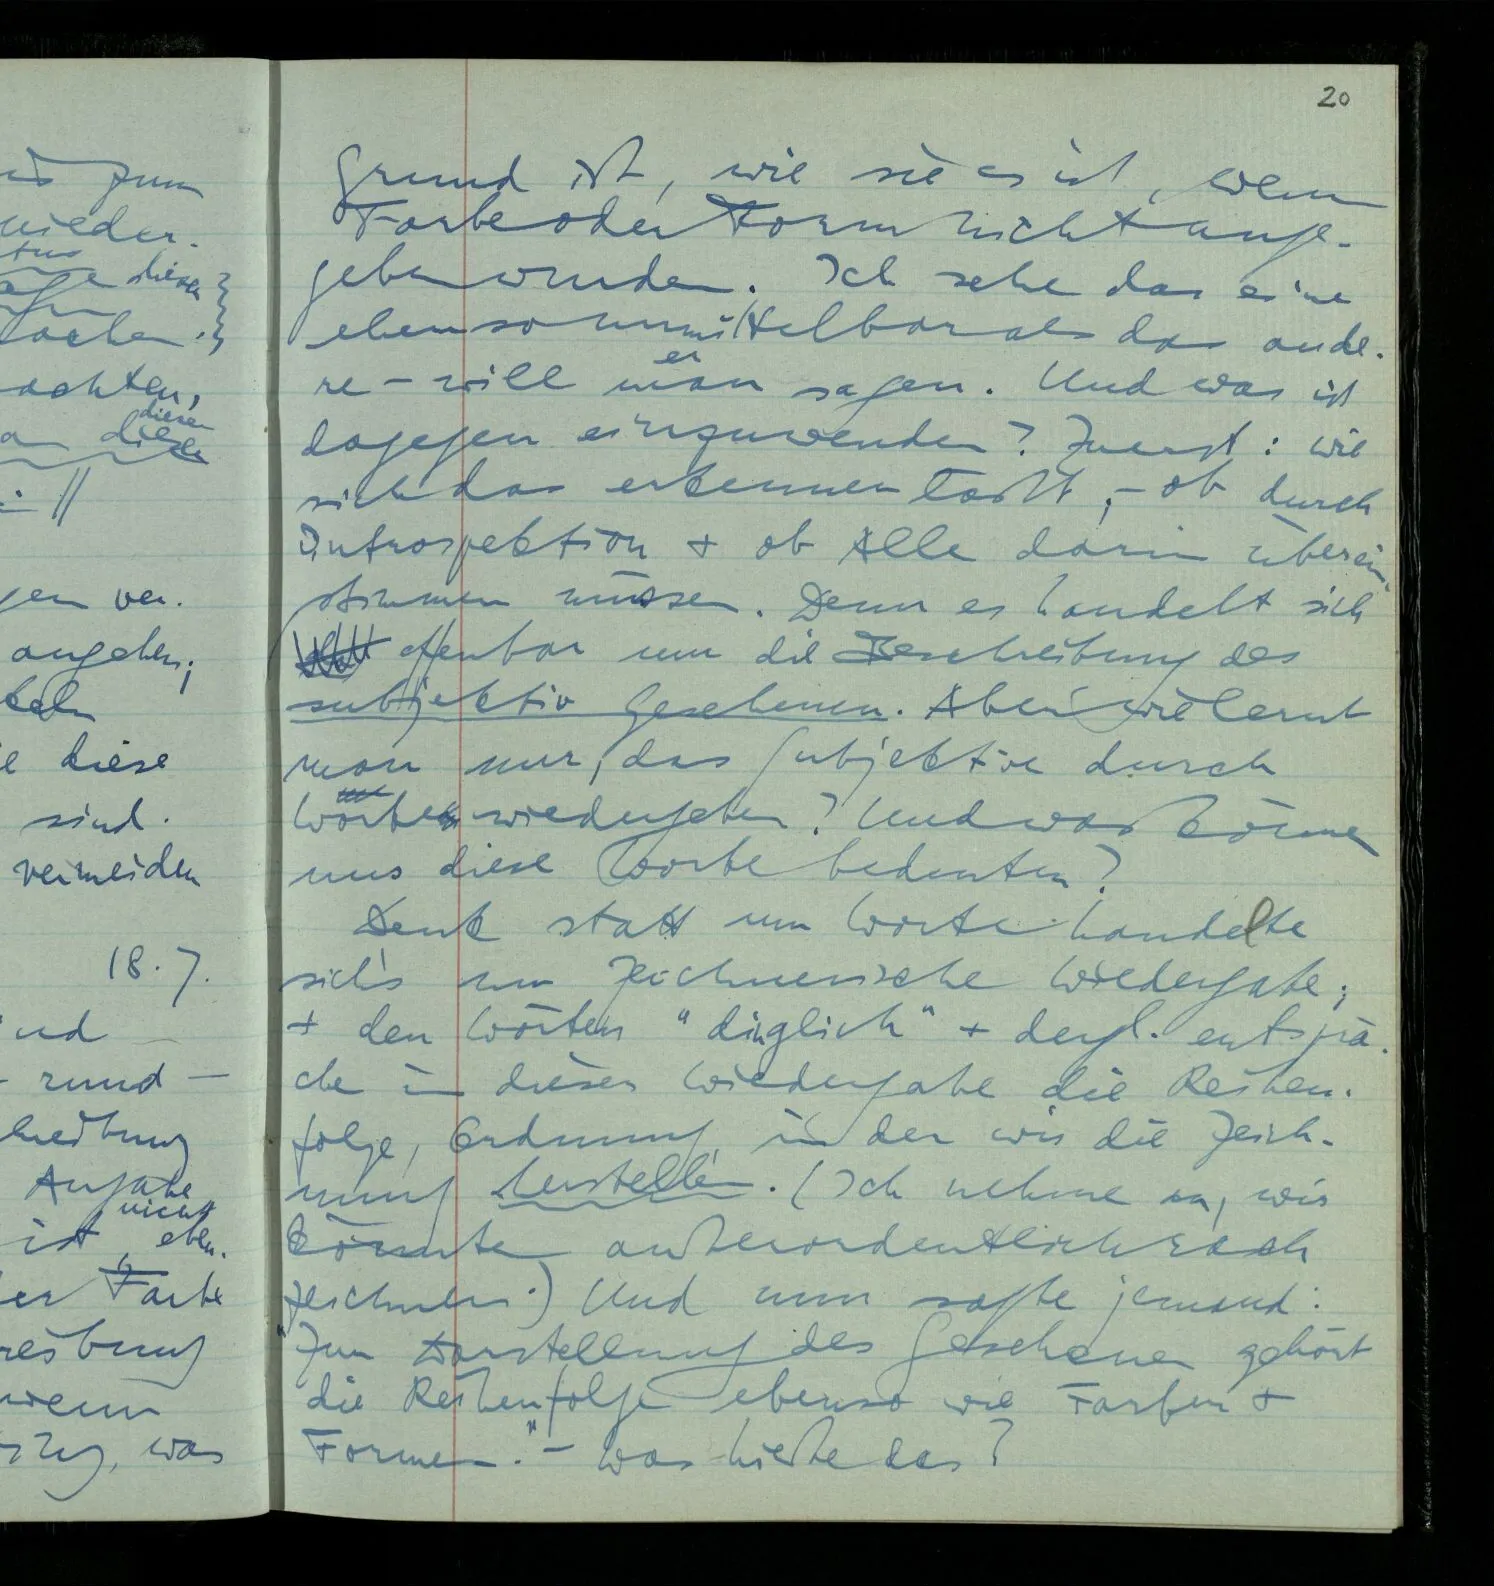 us zum
wieder.
tus
diesen
achen.
achten,
diesen
diese
: //
gen ver-
angeben;
keln
e diese
sind.
vermeiden
18.7.
ind
– rund –
hreibung
Angabe
nicht
ist, eben-
er Farbe
reibung
wenn
was
20
Grund ist, wie sie es ist, wenn
Farbe oder Form nicht ange-
geben wurden. Ich sehe das eine
ebenso unmittelbar als das ande-
er
re – will man sagen. Und was ist
dagegen einzuwenden? Zuerst: wie
sich das erkennen läßt, – ob durch
Introspektion + ob Alle darin überein-
stimmen müssen. Denn es handelt sich
offenbar um die Beschreibung des
subjektiv Gesehenen. Aber wie lernt
man nur, das Subjektive durch
Worte wiedergeben? Und was können
uns diese Worte bedeuten?
Denk statt um Worte handelte
sich's um zeichnerische Wiedergabe;
+ den Wörtern "dinglich" + dergl. entsprä-
che in dieser Wiedergabe die Reihen-
folge, Ordnung in der wir die Zeich-
nung herstellen. (Ich nehme an, wir
könnten außerordentlich rasch
zeichnen.) Und nun sagte jemand:
"Zur Darstellung des Gesehenen gehört
die Reihenfolge ebenso wie Farben +
Formen." – Was hieße das?